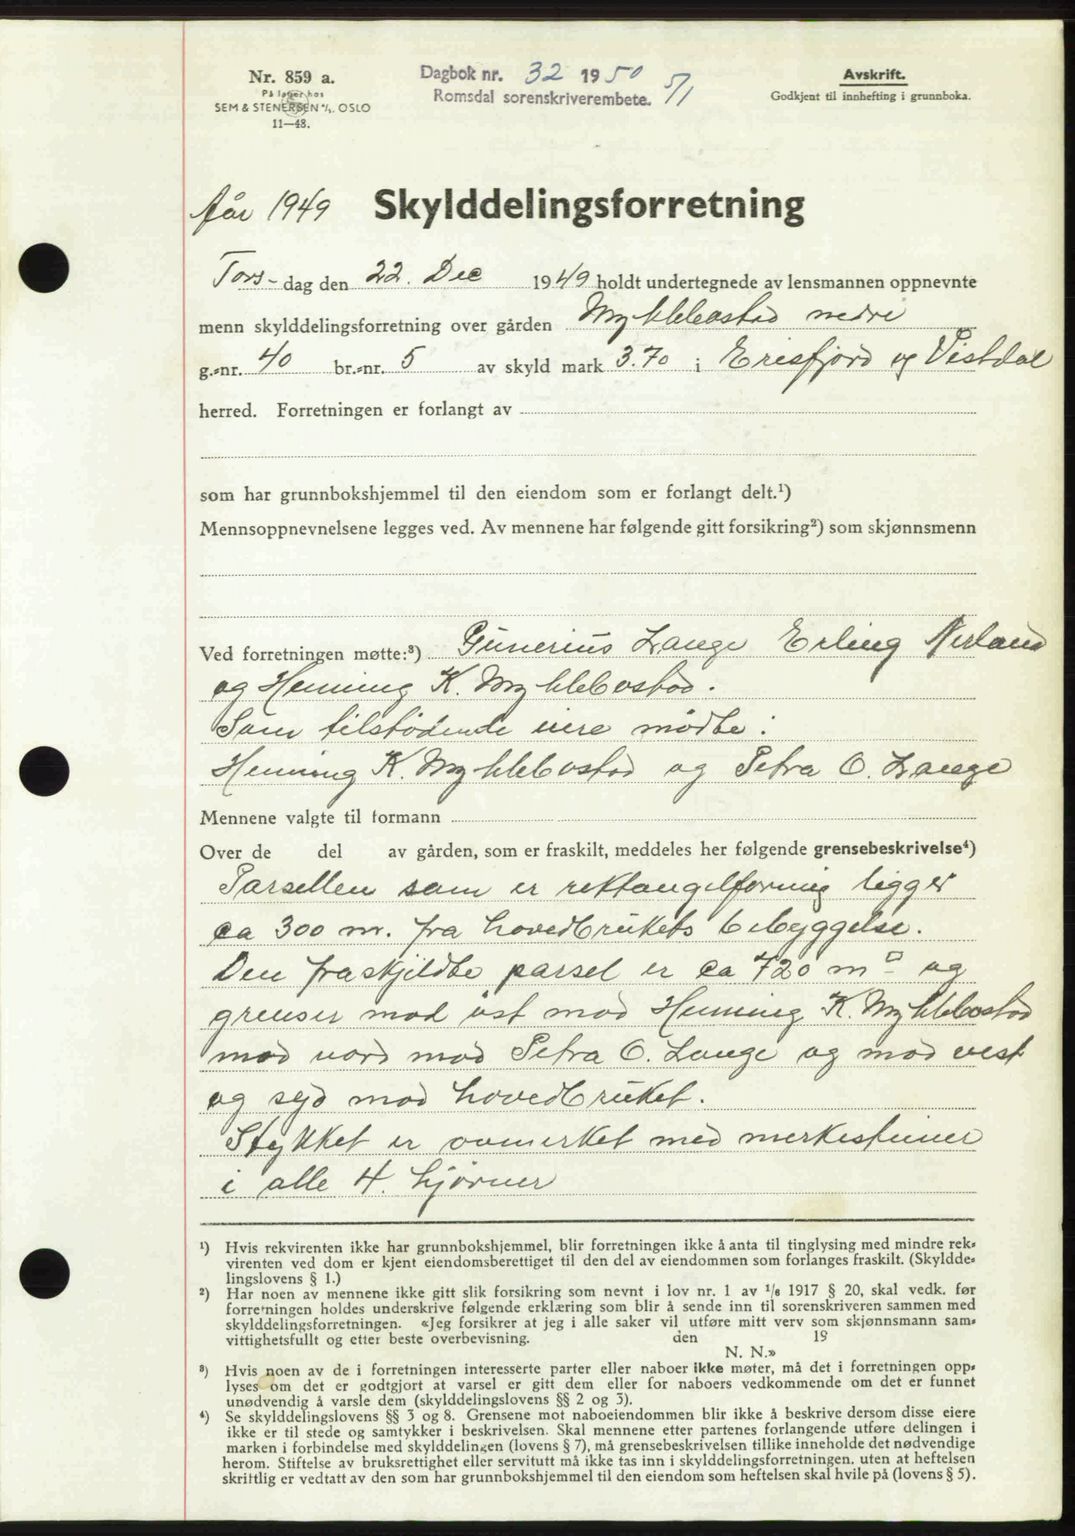 Nr. 859 a.
På lager hos
SEM & STENERSEN A/S. OSLO
11—48.
Dagbok nr. 32 1950 5/1
Romsdal sorenskriverembete.
Avskrift.
Godkjent til innhefting i grunnboka.
År 1949 Skylddelingsforretning
Tors- dag den 22. Dec 1949 holdt undertegnede av lensmannen oppnevnte
menn skylddelingsforretning over gården Myklebostad nedre
g.-nr. 40 br.-nr. 5 av skyld mark 3.70 i Erisfjord og Vistdal
herred. Forretningen er forlangt av
som har grunnbokshjemmel til den eiendom som er forlangt delt.¹)
Mennsoppnevnelsene legges ved. Av mennene har følgende gitt forsikring²) som skjønnsmenn
Ved forretningen møtte:³) Gunerius Lange Erling
og Henning K. Myklebostad.
Som tilstødende eiere mødte:
Henning K. Myklebostad og Petra O. Lange
Mennene valgte til formann
Over de del av gården, som er fraskilt, meddeles her følgende grensebeskrivelse⁴)
Parsellen som er rektangelformig ligger
ca 300 m. fra hovedbrükets bebyggelse.
Den fraskjildte parsel er ca 720 m□ og
grenser mod øst mod Henning K. Myklebostad
mod nord mod Petra O. Lange og mod vest
og syd mod hovedbrüket.
Stykket er avmerket med merkesteiner
i alle 4. hjørner
¹) Hvis rekvirenten ikke har grunnbokshjemmel, blir forretningen ikke å anta til tinglysing med mindre rek-
virenten ved dom er kjent eiendomsberettiget til den del av eiendommen som forlanges fraskilt. (Skyldde-
lingslovens § 1.)
²) Har noen av mennene ikke gitt slik forsikring som nevnt i lov nr. 1 av 1/6 1917 § 20, skal vedk. før
forretningen holdes underskrive følgende erklæring som blir å sende inn til sorenskriveren sammen med
skylddelingsforretningen. «Jeg forsikrer at jeg i alle saker vil utføre mitt verv som skjønnsmann sam-
vittighetsfullt og etter beste overbevisning. den 19
N. N.»
³) Hvis noen av de i forretningen interesserte parter eller naboer ikke møter, må det i forretningen opp-
lyses om det er godtgjort at varsel er gitt dem eller for naboers vedkommende om det er funnet
unødvendig å varsle dem (skylddelingslovens §§ 2 og 3).
⁴) Se skylddelingslovens §§ 3 og 8. Grensene mot naboeiendommen blir ikke å beskrive dersom disse eiere
ikke er til stede og samtykker i beskrivelsen. Skal mennene etter partenes forlangende utføre delingen i
marken i forbindelse med skylddelingen (lovens § 7), må grensebeskrivelsen tillike inneholde det nødvendige
herom. Stiftelse av bruksrettighet eller servitutt må ikke tas inn i skylddelingsforretningen. uten at heftelsen
skriftlig er vedtatt av den som har grunnbokshjemmel til den eiendom som heftelsen skal hvile på (lovens § 5).